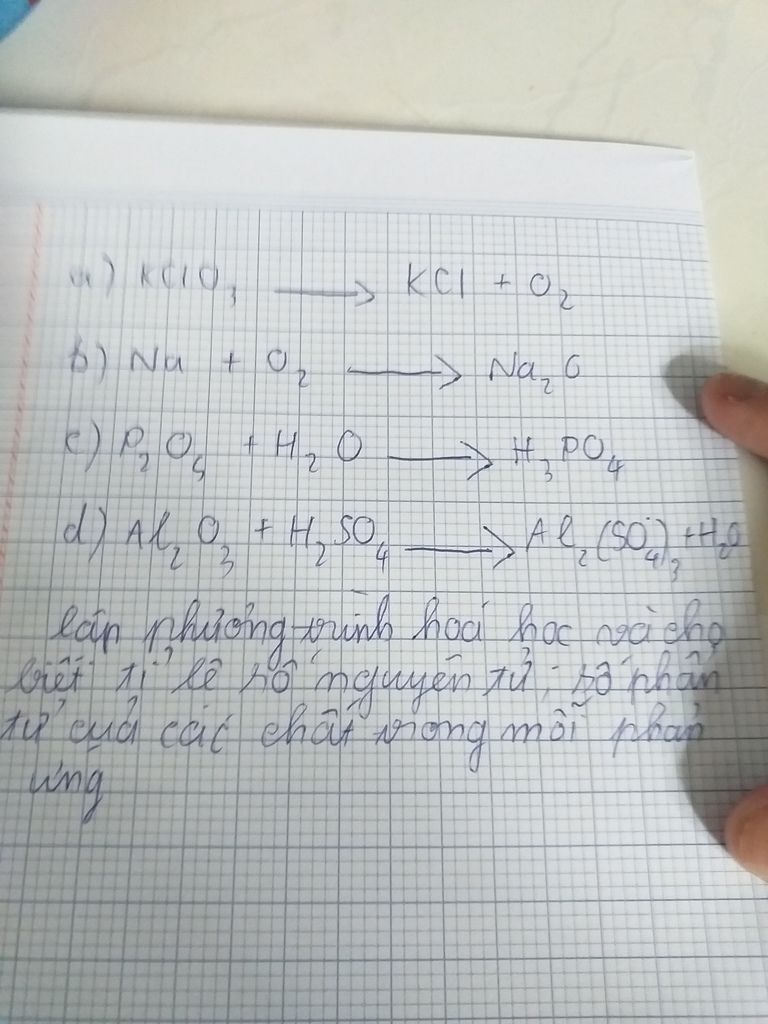 a) KClO₃ ⟶ KCl + O₂
b) Na + O₂ ⟶ Na₂O
c) P₂O₅ + H₂O ⟶ H₃PO₄
d) Al₂O₃ + H₂SO₄ ⟶ Al₂(SO₄)₃ + H₂O
lập phương trình hoá học và cho
biết tỉ lệ số nguyên tử, số phân
tử của các chất trong mỗi phản
ứng